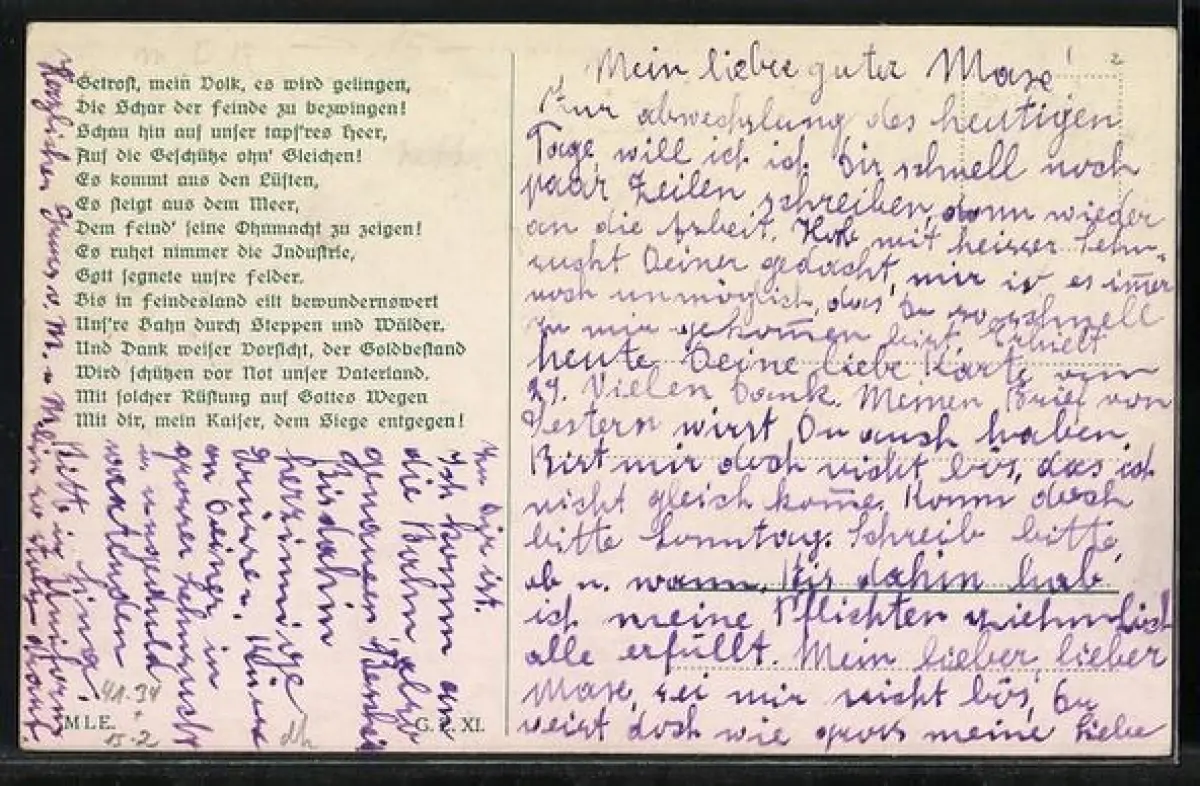 Getrost, mein Volk, es wird gelingen,
Die Schar der Feinde zu bezwingen!
Schau hin auf unser tapf'res Heer,
Auf die Geschütze ohn' Gleichen!
Es kommt aus den Lüften,
Es steigt aus dem Meer,
Dem Feind' seine Ohnmacht zu zeigen!
Es ruhet nimmer die Industrie,
Gott segnete unsre Felder.
Bis in Feindesland eilt bewundernswert
Uns're Bahn durch Steppen und Wälder.
Und Dank weiser Vorsicht, der Goldbestand
Wird schützen vor Not unser Vaterland.
Mit solcher Rüstung auf Gottes Wegen
Mit dir, mein Kaiser, dem Siege entgegen!
MLE.
XI.
Mein lieber guter Max!
Zur abwechslung des heutigen
Tage, will ich Dir schnell noch
paar Zeilen schreiben, dann wieder
an die Arbeit. Hab mit heisser Sehn-
sucht Deiner gedacht, mir is es im̄er
noch unmöglich, das Du so schnell
zu mir gekom̄en bist. Erhielt
heute Deine liebe Karte vom
29. Vielen Dank. Meinen Brief von
Gestern wirst Du auch haben.
Bist mir doch nicht bös, das ich
nicht gleich kom̄e. Komm doch
bitte Sonntag. Schreib bitte,
ob u. wann. Bis dahin hab
ich meine Pflichten ziehmlich
alle erfüllt. Mein lieber, lieber
Max, sei mir nicht bös, Du
weist doch wie gross meine Liebe
zu Dir ist.
Ich komm an
die Bahn, also
genauen Beschei
Bisdahin
herzinnige
Grüsse u. Küsse
an Deiner in
grosser Sehnsucht
u. ungeduld
wartenden
Bitt in Uniform
Mein so stolz
Herzlichen Gruss v. M. u
41-34
15-2